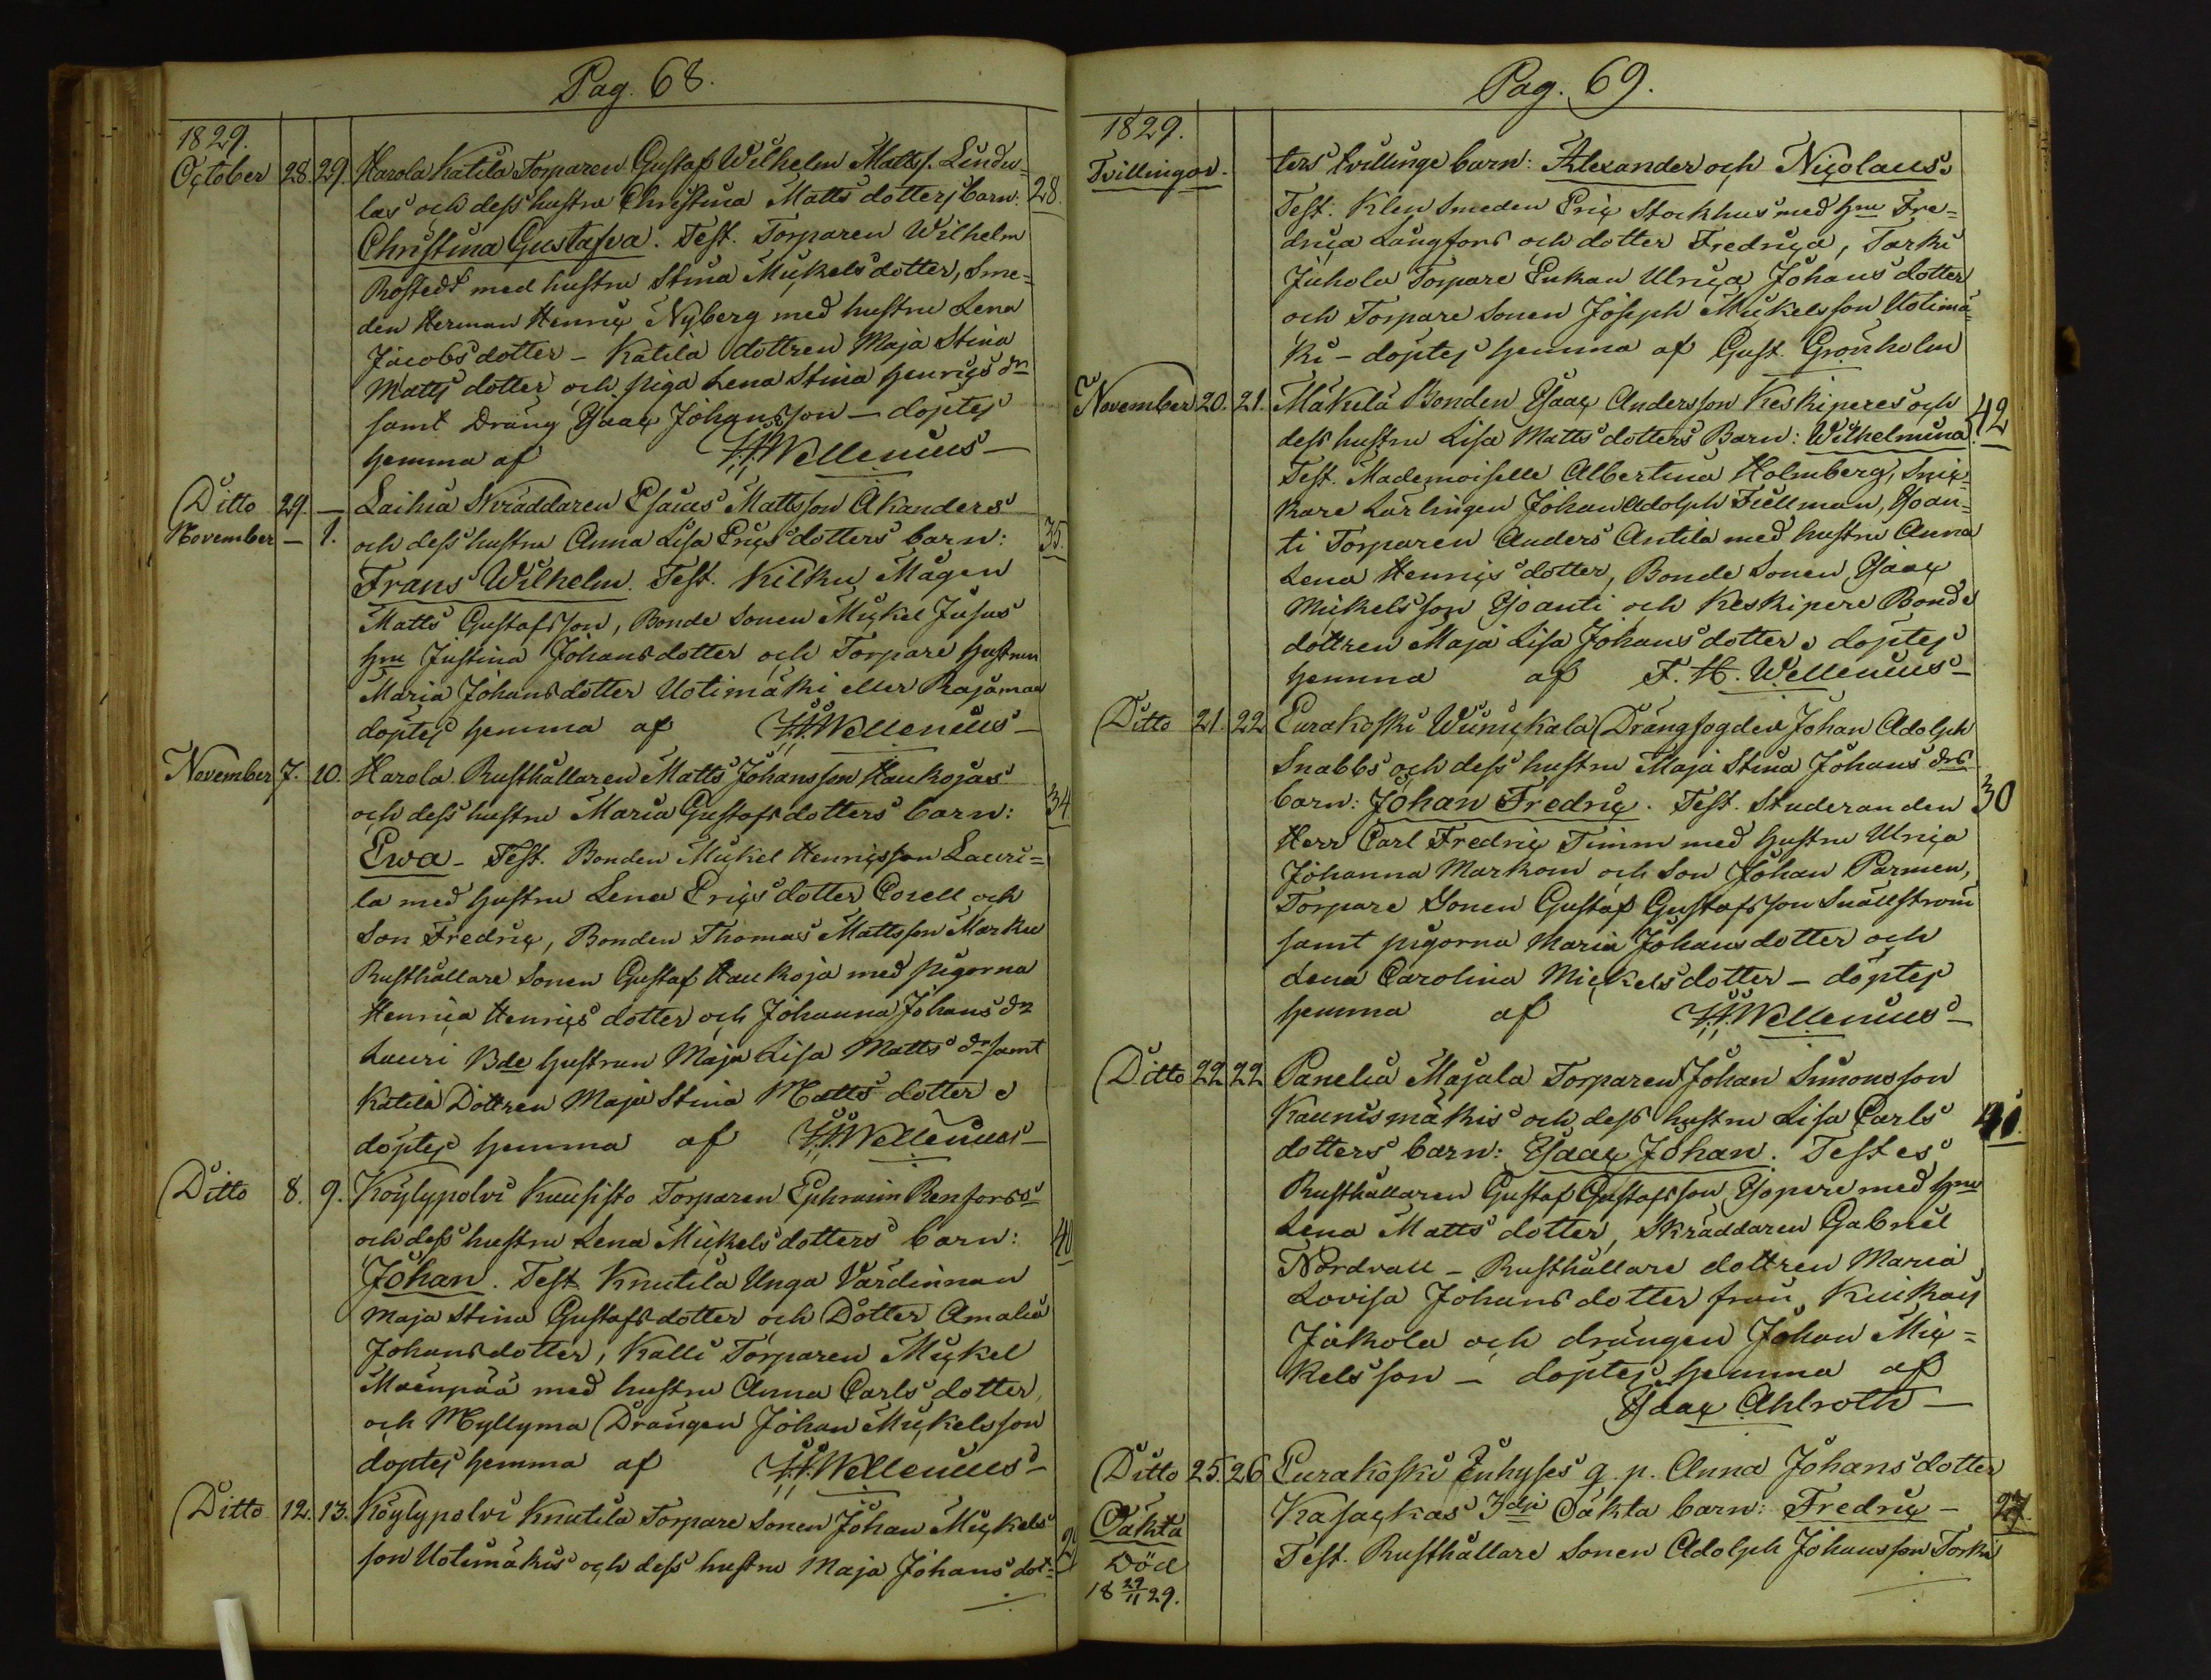 Pag. 68.
1829.
October 28. 29. Harola Katila Torparen Gustaf Wilhelm Matts. Lindu=
las och dess hustru Christina Matts dotters barn: 28.
Christina Gustafva. Test. Torparen Wilhelm
Rostedt med hustru Stina Mickels dotter, Sme=
den Herman Henric Nyberg med hustru Lena
Jacobs dotter - Katila dottren Maja Stina
Matts dotter och piga Lena Stina Henrics dr
samt Dräng Isaac Johansson - döptes
hemma af F.H. Wellenius -
Ditto 29. — Laihia Skräddaren Esaias Mattsson Åkanders
November — 1. och dess hustru Anna Lisa Erics dotters barn: 35.
Frans Wilhelm. Test. Kilku Mågen
Matts Gustafsson, Bonde Sonen Mickel Jusas
hru Justina Johansdotter och Torpare hustrun
Maria Johansdotter Uotimäki eller Rajamaa
döptes hemma af F.H. Wellenius -
November 7. 10. Harola Rusthållaren Matts Johansson Haukojas
och dess hustru Maria Gustafsdotters barn: 34
Ewa - Test. Bonden Mickel Henricsson Lauri=
la med hustru Lena Erics dotter Corell och
Son Fredric, Bonden Thomas Mattsson Marku
Rusthållare Sonen Gustaf Haukoja med pigorna
Henrica Henrics dotter och Johanna Johans dr
Lauri Bde hustrun Maja Lisa Matts dr samt
Katila Dottren Maja Stina Matts dotter
döptes hemma af F.H. Wellenius -
Ditto 8. 9. Köylypolvi Kuusisto Torparen Ephraim Renfors
och dess hustru Lena Mickels dotters barn: 40
Johan. Test. Knutila Unga Värdinnan
Maja Stina Gustafsdotter och Dotter Amalia
Johansdotter, Kalli Torparen Mickel
Mäenpää med hustru Anna Carls dotter,
och Myllyma Drängen Johan Mickelsson
döptes hemma af F.H. Wellenius -
Ditto 12. 13. Köylypolvi Knutila Torpare Sonen Johan Mickels
son Uotimäkis och dess hustru Maja Johans dot=
Pag. 69.
1829.
Tvillingar. ters tvillinge barn: Alexander och Nicolaus.
Test. Klensmeden Eric Stockhus med hru Fre=
drica Långfors och dotter Fredrica, Torki
Juhola Torpare Enkan Ulrica Johans dotter
och Torpare Sonen Joseph Mickelsson Uotimä=
ki - döptes hemma af Gust. Grönholm
November 20. 21. Mäkelä Bonden Isaac Andersson Keskiperes och
dess hustru Lisa Matts dotters Barn: Wilhelmina. 42
Test. Mademoiselle Albertina Holmberg, Snic=
kare Lärlingen Johan Adolph Fiellman, Isoan=
ti Torparen Anders Antila med hustru Anna
Lena Henrics dotter, Bonde Sonen Isaac
Mickelsson Isoanti och Keskipere Bonde
dottren Maja Lisa Johans dotter döptes
hemma af F.H. Wellenius -
Ditto 21. 22 Eurakoski Winickala Drängfogden Johan Adolph
Snabbs och dess hustru Maja Stina Johans drs
barn: Johan Fredric. Test. Studeranden 30
Herr Carl Fredric Timm med hustru Ulrica
Johanna Markom och Son Johan Parmen,
Torpare Sonen Gustaf Gustafsson Snällström
samt pigorna Maria Johansdotter och
Lena Carolina Mickels dotter - döptes
hemma af F.H. Wellenius -
Ditto 22 22 Panelia Majala Torparen Johan Simonsson
Kaunismäkis och dess hustru Lisa Carls
dotters barn: Isaac Johan. Testes
Rusthållaren Gustaf Gustafsson Isopere med hru
Lena Matts dotter, Skräddaren Gabriel
Nordvall - Rusthållare dottren Maria
Lovisa Johansdotter från Kiukais
Jåkola och drängen Johan Mic=
kelsson - döptes hemma af
Isaac Ahlroth -
Ditto 25. 26 Eurakoski Inhyses q. p. Anna Johansdotter
Oäkta Kasackas 3dje Oäkta barn: Fredric - 27.
Test. Rusthållare Sonen Adolph Johansson Torki
Död
18 29/11 29.